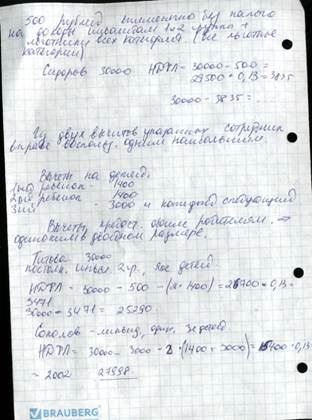 500 рублей ежемесячно без налога
на доходы инвалидам 1 и 2 группы +
льготники всех категорий (все льготные
категории)
Сидоров 30000 НДФЛ = 30000 - 500 =
29500 * 0,13 = 3835
30000 - 3835 = ...
Из двух вычетов упаранных сотрудник
вправе воспольз. одним наибольшим
Вычеты на детей.
1ый ребенок - 1400
2ой ребенок - 1400
3ий - 3000 и каждый следующий
Вычеты предост. обоим родителям. →
одиноким в двойном размере.
30000
инвал. 2гр., двое детей
НДФЛ = 30000 - 500 - (2*1400) = 26700 * 0,13 =
3471.
30000 - 3471 = 25290
Соколов - инвалид, один, 3е детей
НДФЛ = 30000 - 3000 - 2 * (1400 + 3000) = 15400 * 0,13
= 2002 27998
BRAUBERG